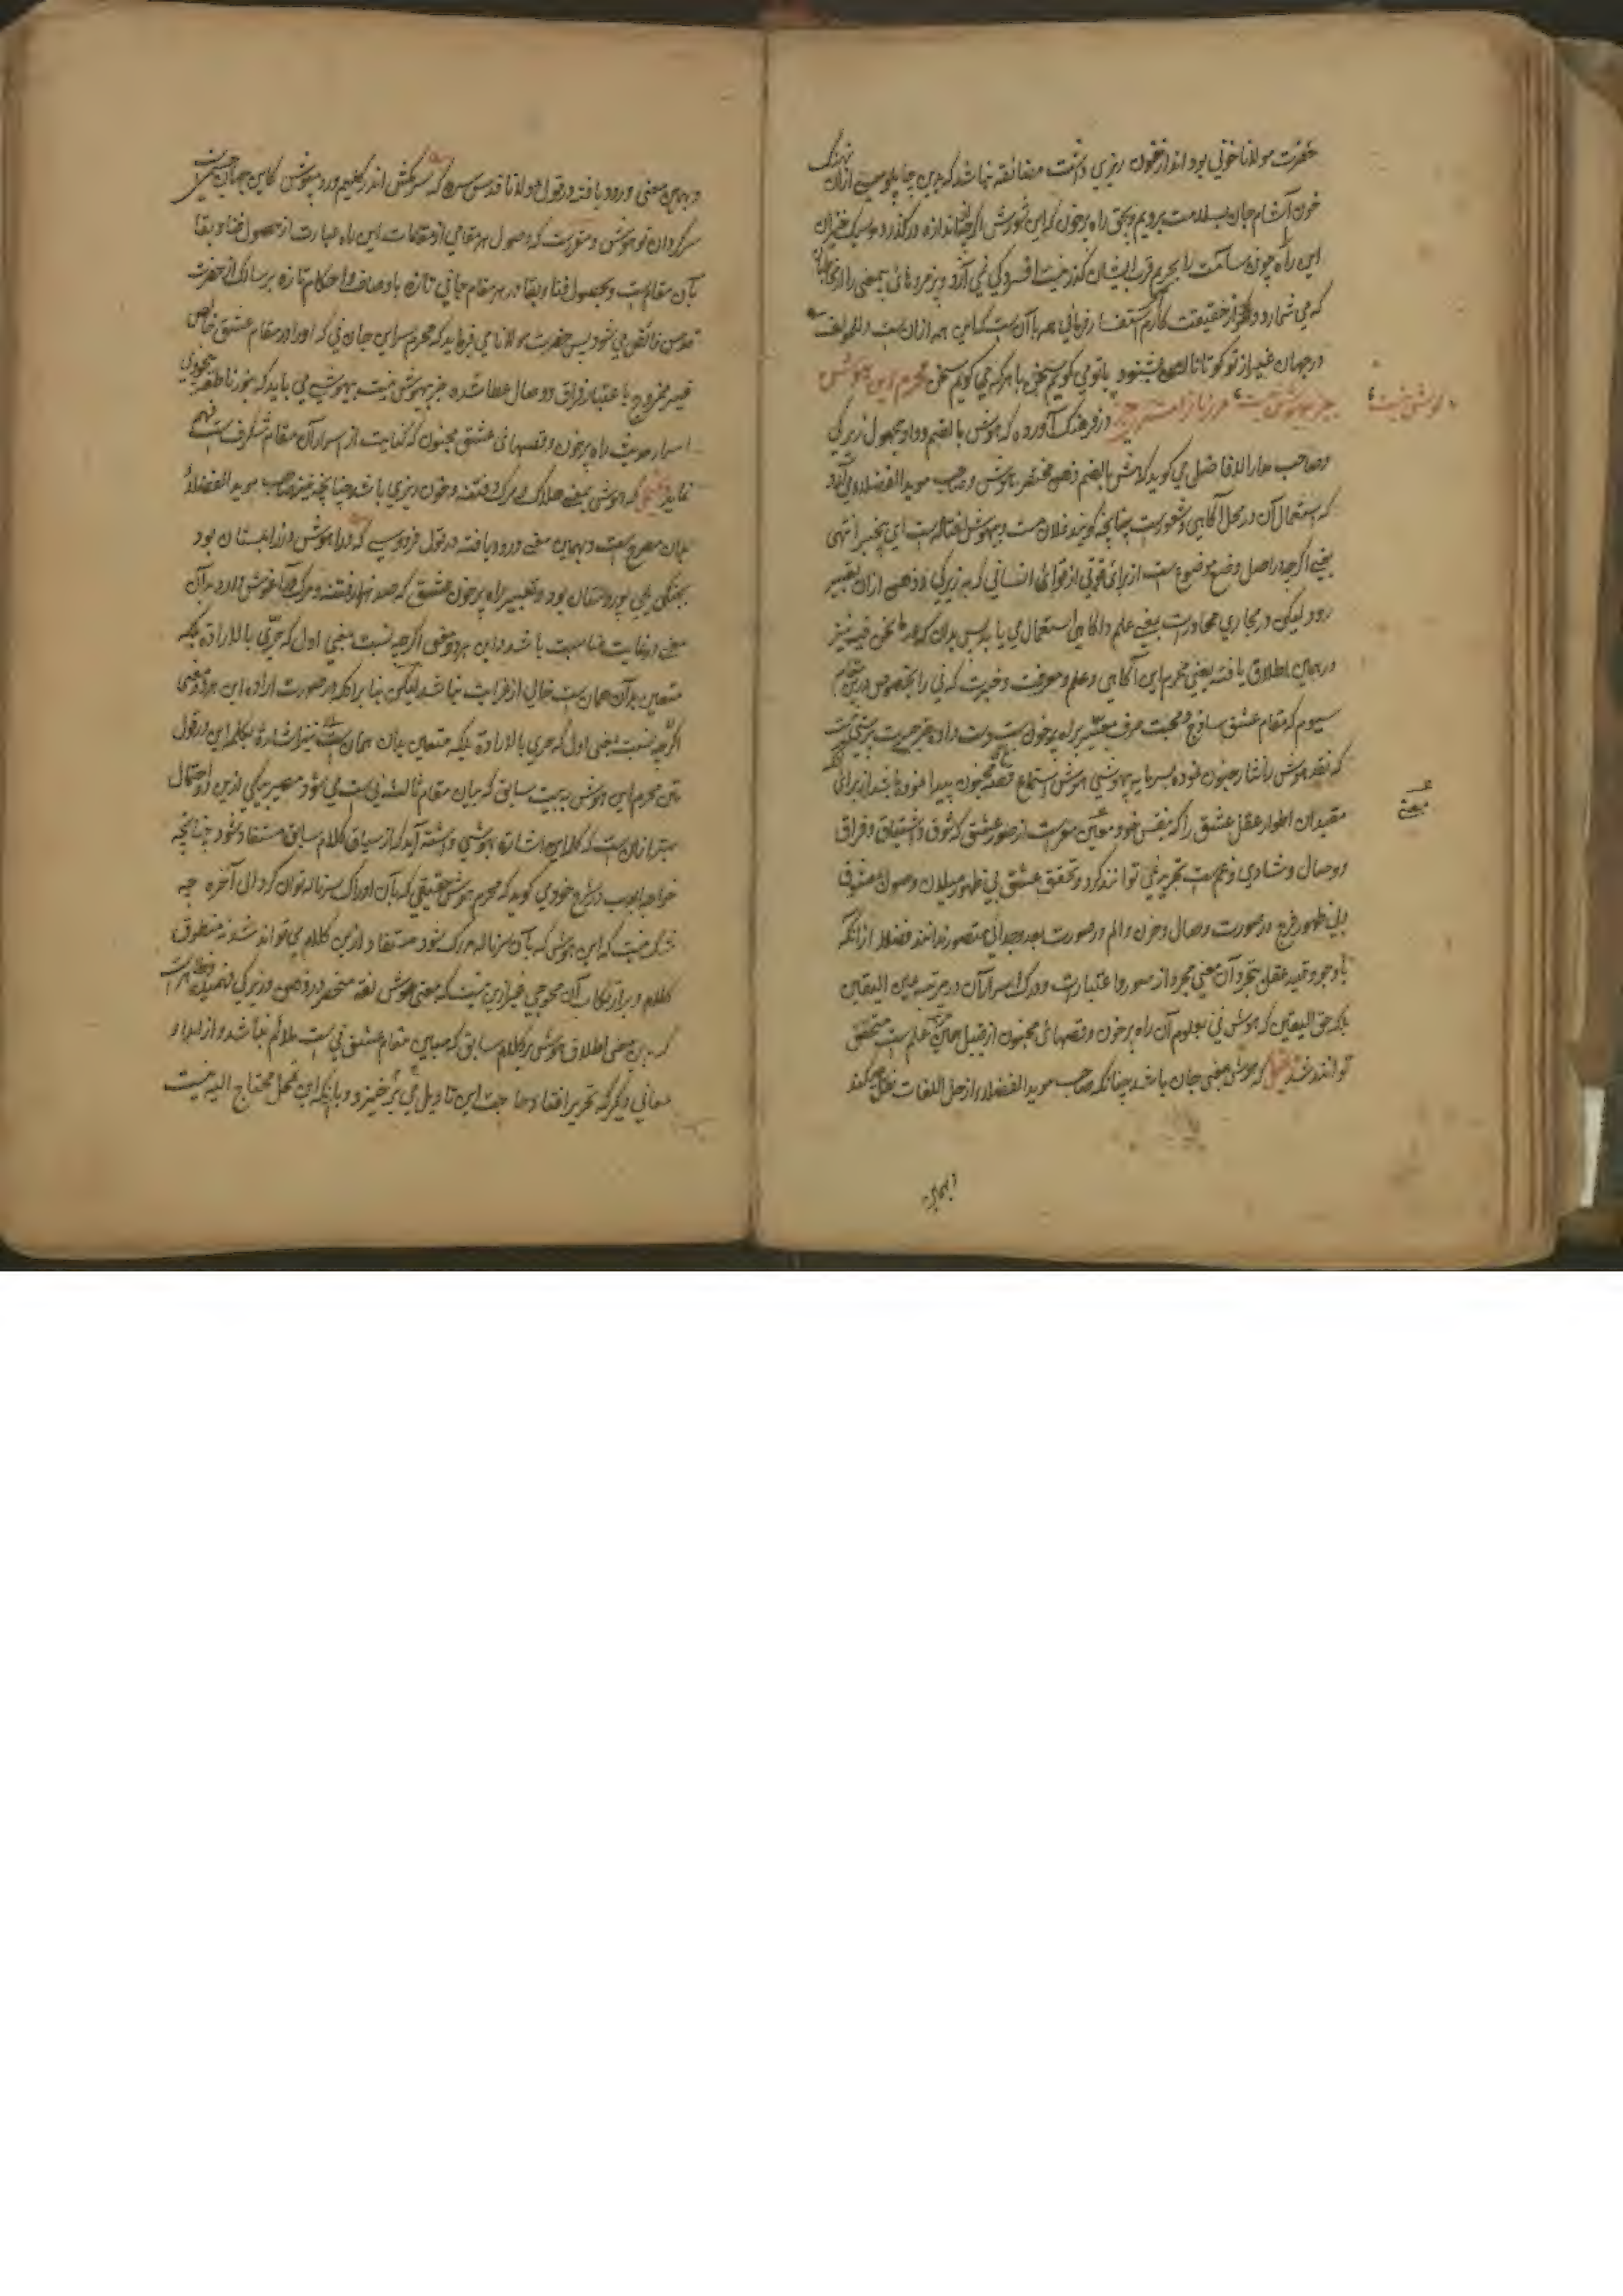 حضرت مولانا خونی بود انداز خون ریزی داشت مضائقه نباشد که بدین چاپلوسی ازان نهنگ
خون آشام جان بسلامت بردیم و بحق راه پرخون که این شورش اگر چه اندازه در گذرد و سبک خیزان
این راه چون سآمت را بحریم قرب ایشان گذر نیست افسردگی نمی آرد و
که می شمارد و حقیقت کارم
در جهان غیر از تو کو تا نالهٔ من بشنود با تو می گویم سخن با هر که می گویم سخن محرم این هوش
جز بیهوش نیست مر زبان را مشتری جز گوش نیست در فرهنگ آورده که هوش بالضم و واو مجهول زیرکی
و صاحب مدار الافاضل می گوید که هش بالضم ذهن مختصر هوش و صاحب موید الفضلاء می آرد
که استعمال آن در محل آگاهی و شعور است چنانچه گویند فلان مست و بیهوش افتاده است ای بیخبر انتهی
یعنی اگرچه در اصل وضع موضوع است از برای قوتی از قوای انسانی که به زیرکی و ذهن ازان تعبیر
رود لیکن در مجاری محاورات بمعنی علم و آگاهی استعمال می یابد پس بدان که در ما نحن فیه نیز
در همان اطلاق یافته یعنی محرم این آگاهی و علم و معرفت و خبرت که نی را بخصوص درین مقام
سیوم که مقام عشق ساذج و محبت صرف معبر براه پرخون است دست داده جز
که نقد هوش را نثار جنون نموده بسرمایه بیهوشی هوش استماع قصه مجنون پیدا نموده باشد از برای آنکه
مقیدان اطوار عقل عشق را که بنفس خود معین سواست از صور عشق که شوق و اشتیاق و فراق
و وصال و شادی و غم است تجرید نمی توانند کرد و تحقق عشق بی ظهور میلان و صول معشوق
و بی ظهور فرح در صورت وصال و حزن و الم در صورت بعد و جدائی متصور ندانند فضلا از آنکه
با وجود قید عقل بتجرد آن معنی مجرد از صور و اعتبارات و درک اسرار آن در مرتبه عین الیقین
بلکه حق الیقین که هوش نی بعلوم آن راه پرخون و قصهای مجنون از قبیل همان علم است متحقق
توانند شد یحتمل که هوش بمعنی جان باشد چنانکه صاحب موید الفضلاء از حل اللغات نقل میکند
و بهمان
یعنی
و بهمان معنی ورود یافته در قول مولانا قدس سره که سر مکش اندر گلیم و رو مپوش کاین جهان
سرگردان تو هوش و مقررست که وصول هر مقامی از مقامات این راه عبارت از حصول فنا و بقا
بآن مقام است و بحصول فنا و بقا در هر مقام حیاتی تازه باوصاف و احکام تازه بر سالک از حضرت
قدس فائض می شود پس حضرت مولانا می فرماید که محرم سر این جان نی که او را در مقام عشق خاص
غیر ممزوج با عتبار فراق و وصال عطا شده جز بیهوش نیست بیهوشی می باید که
اسرار حدیث راه پرخون و قصهای عشق مجنون که کنایت از اسرار آن مقام شگرف است فهم
نماید یحتمل که هوش بمعنی هلاک و مرگ و فتنه و خون ریزی باشد چنانچه نیز صاحب موید الفضلاء
بدان مصرح است و بهمین معنی ورود یافته در قول فردوسی که ورا هوش در زابلستان بود
بچنگ یل پور دستان بود و تعبیر راه پرخون عشق که صد هزار فتنه و مرگ در آغوش دارد بدآن
معنی در غایت مناسبت باشد و این هر دو معنی اگرچه نسبت بمعنی اول که حری بالاراده بلکه
متعین بدآن همان است خالی از غرابت نباشد لیکن بنا برآنکه در صورت اراده این هر دو معنی
اگرچه نسبت بمعنی اول که حری بالاراده بلکه متعین بدان همان است نیز اشارهٔ بکلمه این در قول
متن محرم این هوش به بیت سابق که بیان مقام ثالث نی است می شود مصیر بیکی ازین دو احتمال
بهتر ازان است که کلمه این اشاره بهوشی داشته آید که از سیاق کلام سابق مستفاد شود چنانچه
خواجه ایوب در شرح خود می گوید که محرم هوش حقیقی که بآن ادراک سر ناله توان کرد الی آخره چه
شک نیست که این هوش که بآن سر ناله مدرک شود مستفاد ازین کلام می تواند شد نه منطوق
کلام و بر ارتکاب آن محوجی غیر ازین نیست که معنی هوش لغة منحصر در ذهن و زیرکی
که بدین معنی اطلاق هوش بر کلام سابق که مبین مقام عشق نی است ملائم نباشد و از ایراد
معانی دیگر که تحریر افتاد حاجت این تاویل می برخیزد و بآنکه این محل محتاج الیه نیست